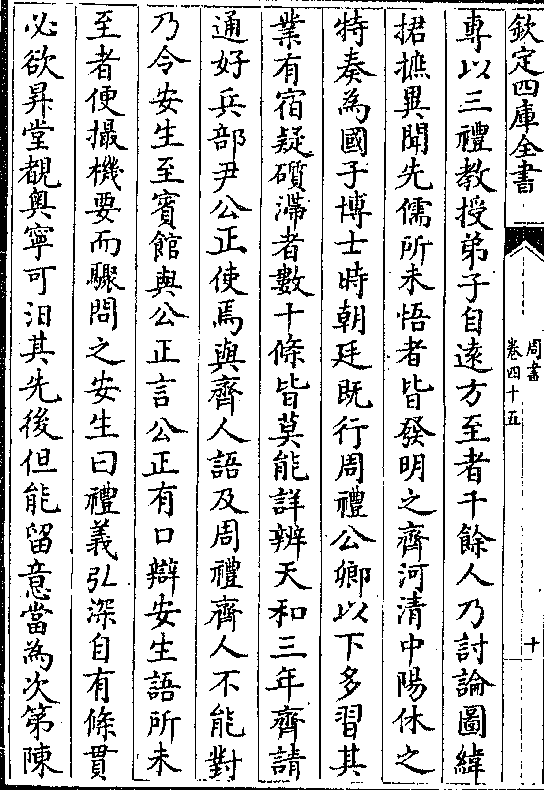 欽定四庫全書
周書
卷四十五
十
專以三禮教授弟子自遠方至者千餘人乃討論圖緯
捃摭異聞先儒所未悟者皆發明之齊河清中陽休之
特奏為國子博士時朝廷既行周禮公卿以下多習其
業有宿疑礩滯者數十條皆莫能詳辨天和三年齊請
通好兵部尹公正使焉與齊人語及周禮齊人不能對
乃令安生至賓館與公正言公正有口辯安生語所未
至者便撮機要而驟問之安生曰禮義弘深自有條貫
必欲昇堂覩奧寧可汨其先後但能留意當為次第陳